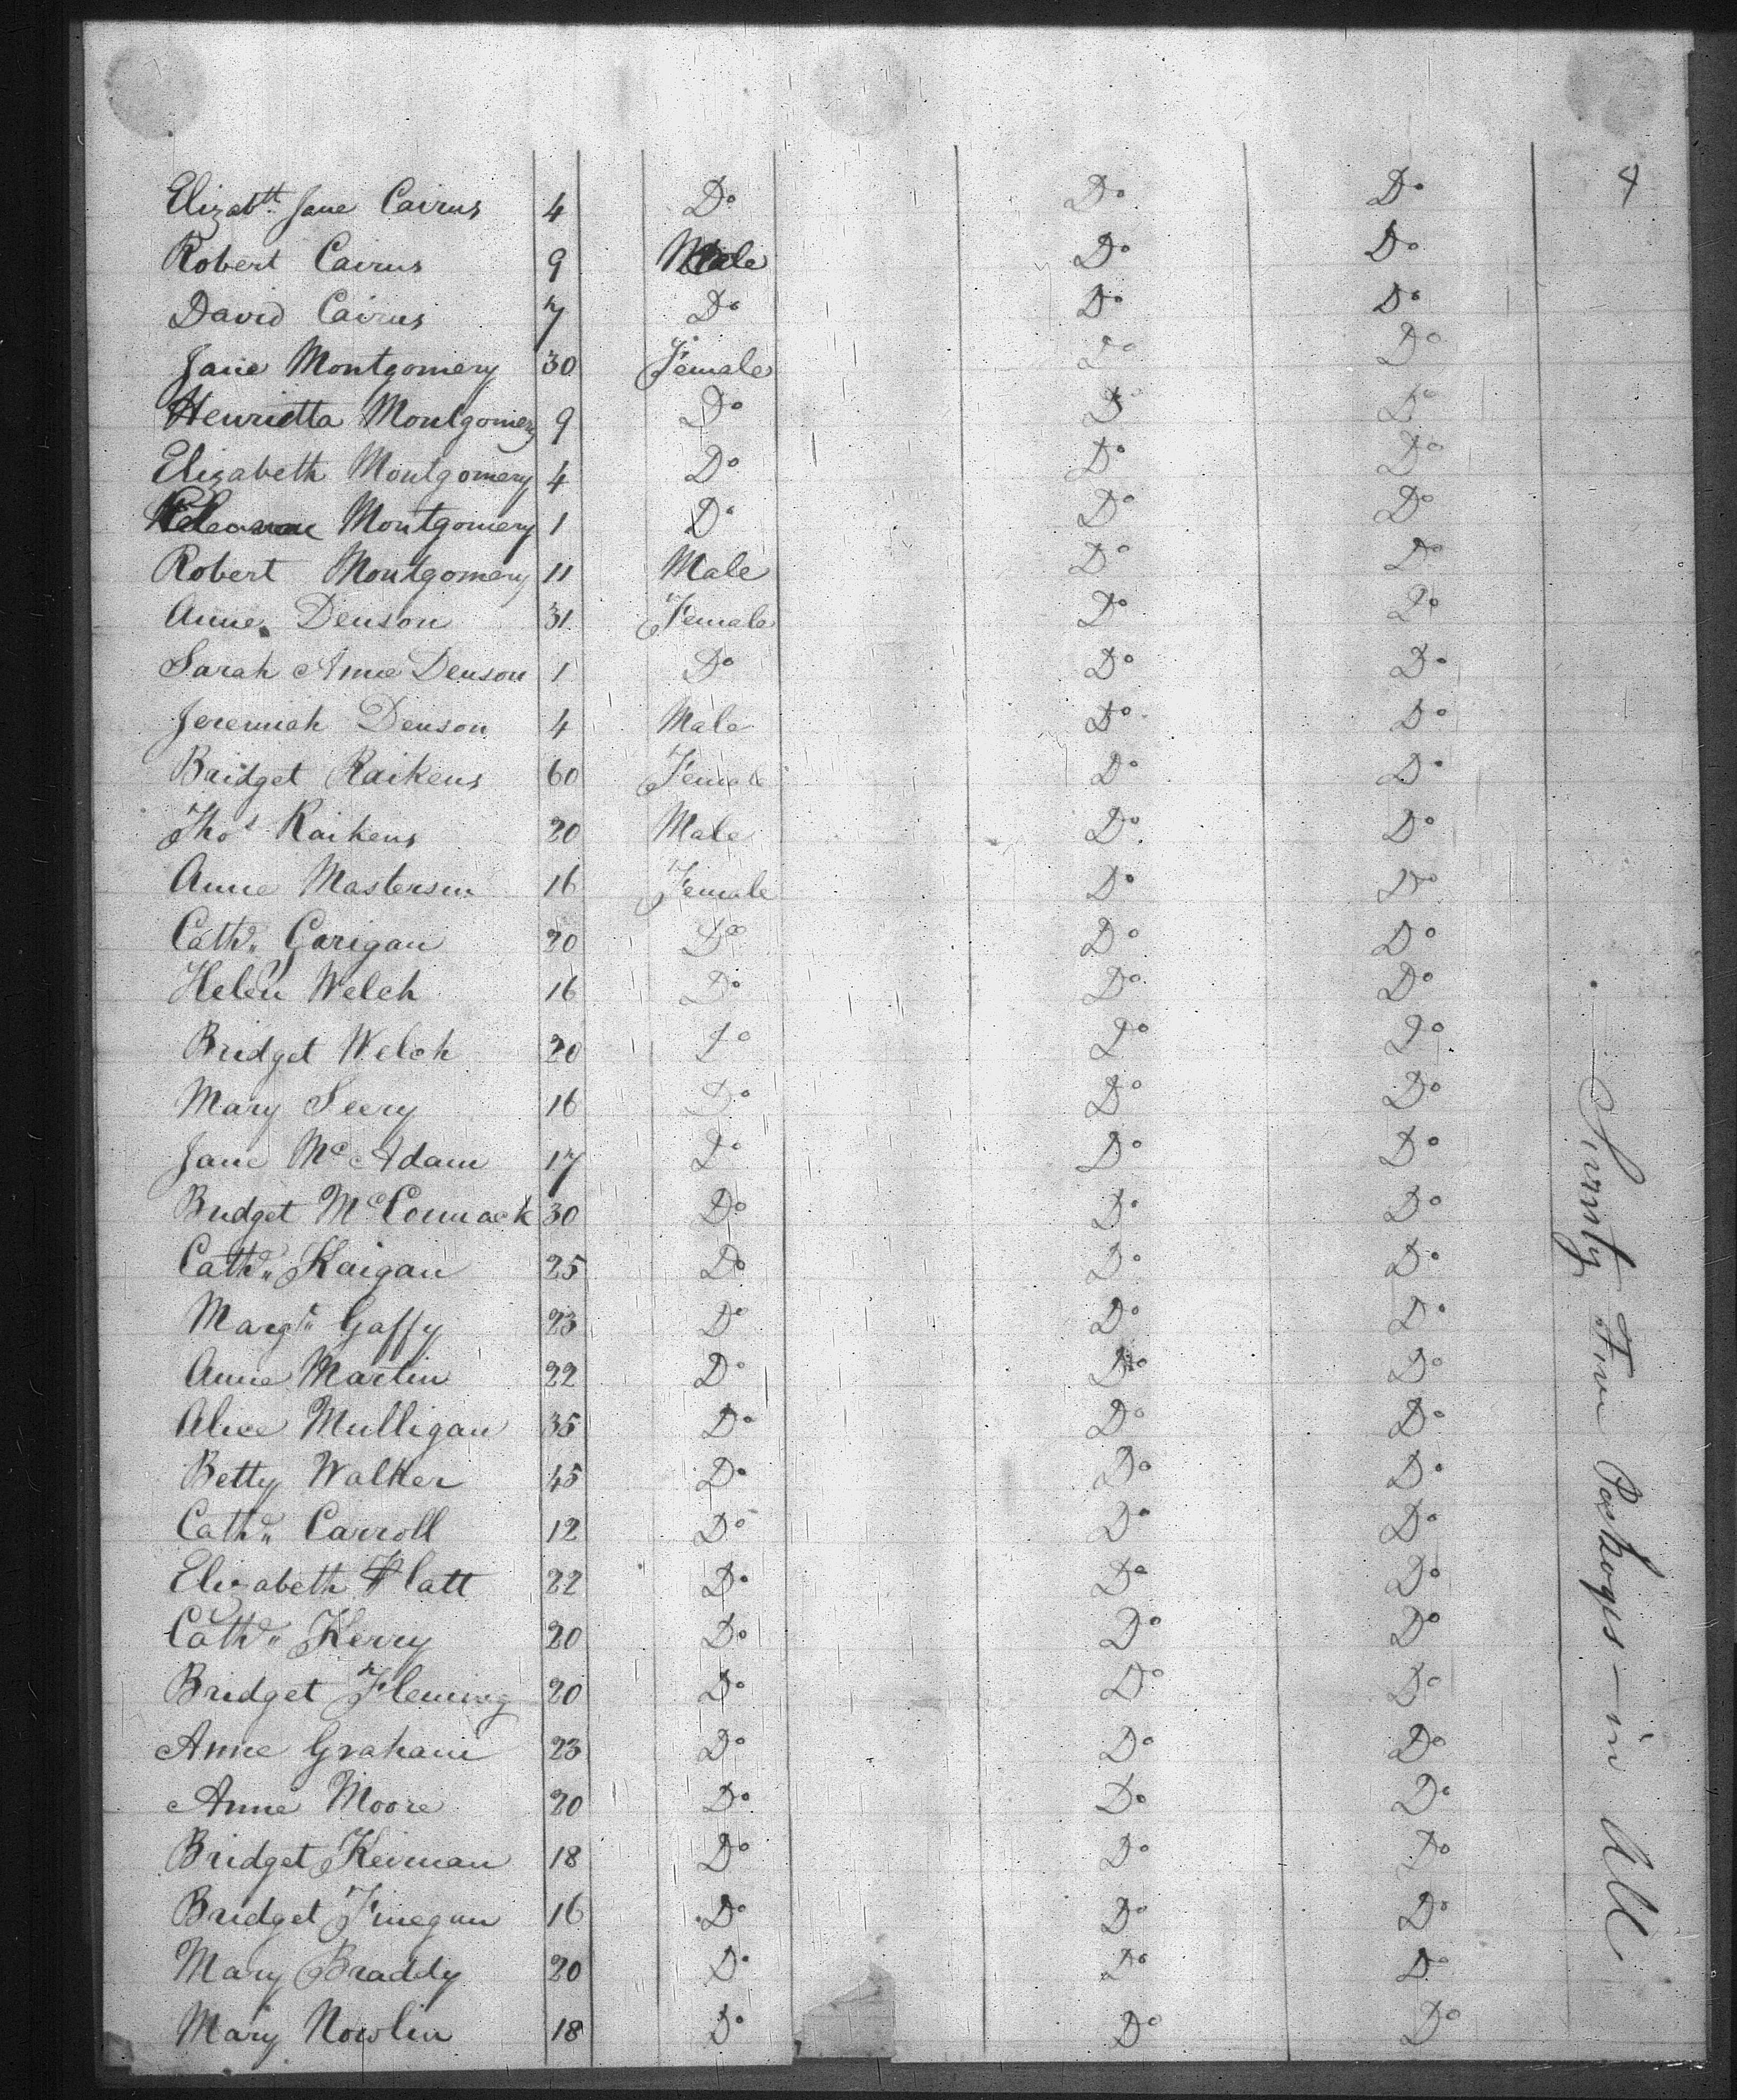 4
Elizabth. Jane Cairns 4 Do Do Do
Robert Cairns 9 Male Do Do
David Cairns 7 Do Do Do
Jane Montgomery 30 Female Do Do
Henrietta Montgomery 9 Do Do Do
Elizabeth Montgomery 4 Do Do Do
Montgomery 1 Do Do Do
Robert Montgomery 11 Male Do Do
Anne Denson 31 Female Do Do
Sarah Anne Denson 1 Do Do Do
Jeremiah Denson 4 Male Do Do
Bridget Raikens 60 Female Do Do
Thos Raikens 20 Male Do Do
Anne Masterson 16 Female Do Do
Cathe. Garigan 20 Do Do Do
Helen Welch 16 Do Do Do
Bridget Welch 20 Do Do Do
Mary Seery 16 Do Do Do
Jane McAdam 17 Do Do Do
Bridget McCormack 30 Do Do Do
Cathe. Kaigan 25 Do Do Do
Margt. Gaffy 23 Do Do Do
Anne Martin 22 Do Do Do
Alice Mulligan 35 Do Do Do
Betty Walker 45 Do Do Do
Cathe. Carroll 12 Do Do Do
Elizabeth Platt 22 Do Do Do
Cathe. Kerry 20 Do Do Do
Bridget Fleming 20 Do Do Do
Anne Graham 23 Do Do Do
Anne Moore 20 Do Do Do
Bridget Keirnan 18 Do Do Do
Bridget Finegan 16 Do Do Do
Mary Braddy 20 Do Do Do
Mary Nowlin 18 Do Do Do
in All